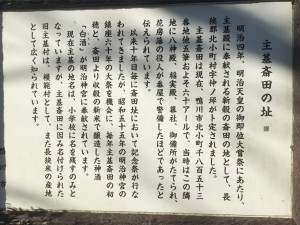 主基斎田の址
明治四年、明治天皇の御即位大嘗祭にあたり、
主基殿に奉献される新穀の斎田の地として、長
狭郡北小町村字仲ノ坪が卜定されました。
主基斎田は現在、鴨川市北小町千八百五十三
番地他五筆およそ六十アールで、当時はこの隣
地に八神殿、稲実殿、幕社、御備所がたてられ、
花房藩の役人が番屋で警備したほどであったと
伝えられています。
以来十年目毎に斎田址において記念祭が行な
われてきましたが、昭和五十五年の明治神宮の
鎮座六十年の大祭を機会に、毎年主基斎田の初
穂と、斎田より収穫の新米で醸造した神酒
「白滴」が明治神宮に奉献されています。
現在主基地名は、小学校に名を残すのみと
なっていますが、主基斎田に因み名付けられた
旧主基村は、模範村として、また長狭米の産地
として広く知られています。